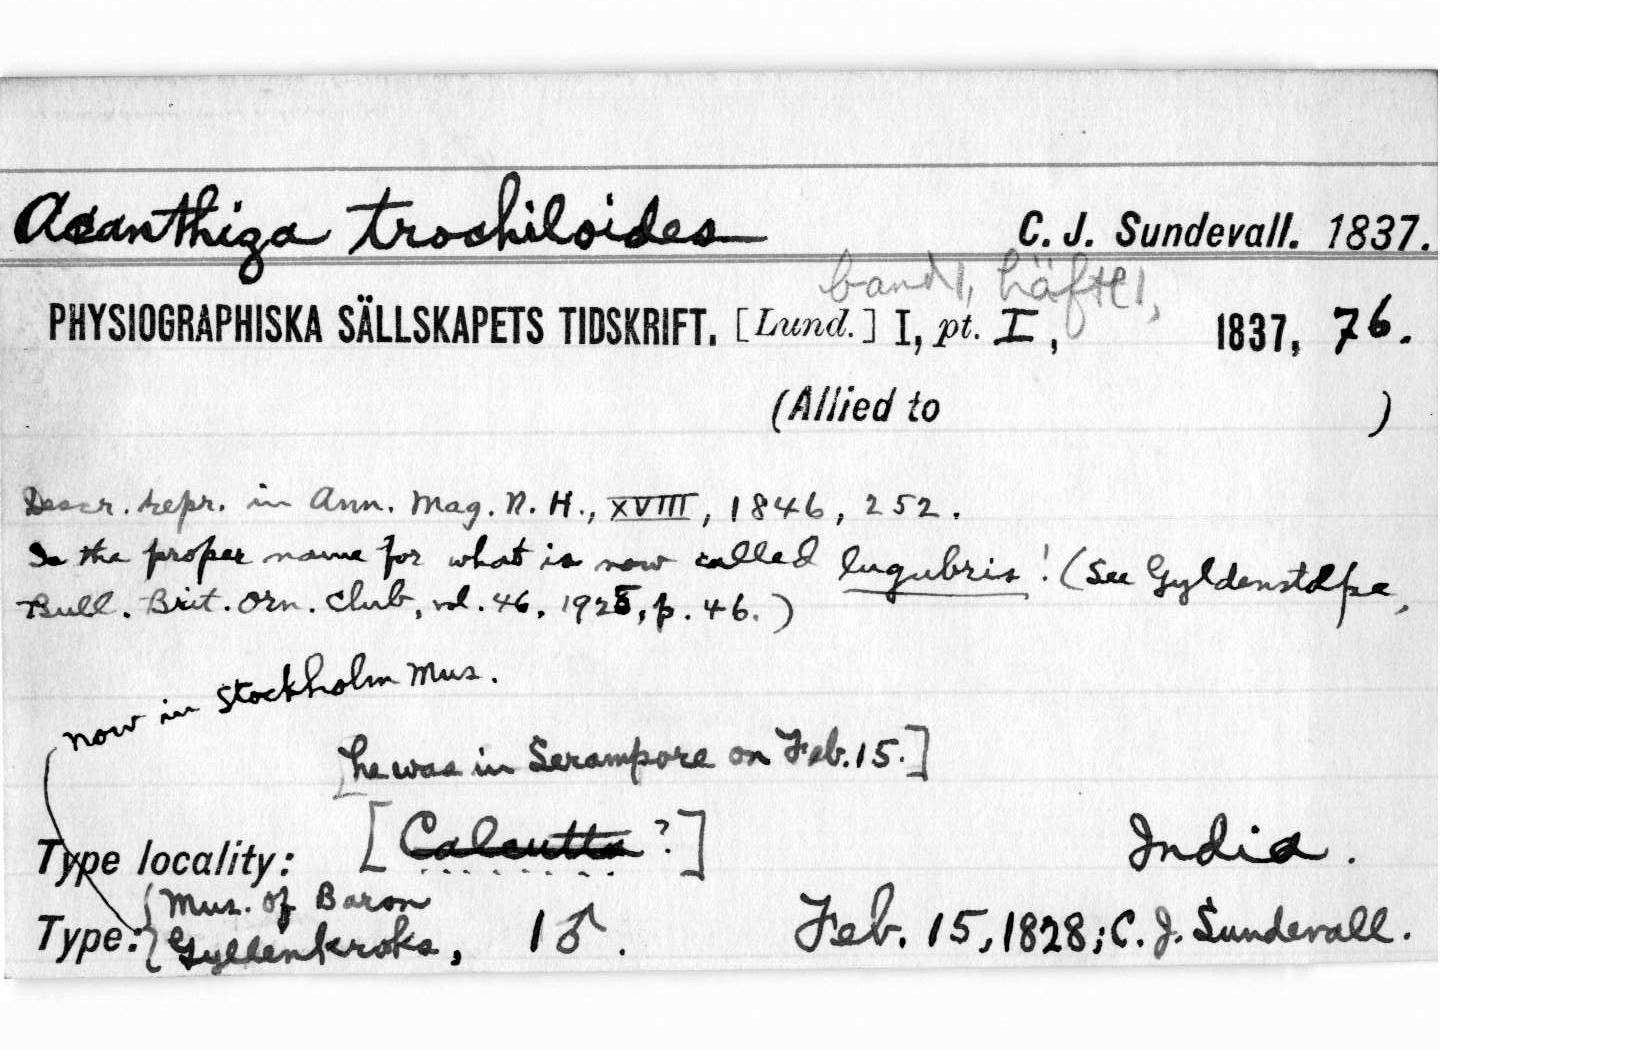 Acanthiza trochiloides C. J. Sundevall. 1837.
band 1, häfte 1,
PHYSIOGRAPHISKA SÄLLSKAPETS TIDSKRIFT. [Lund.] I, pt. I, 1837, 76.
(Allied to )
Descr. repr. in Ann. Mag. N. H., XVIII, 1846, 252.
Is the proper name for what is now called lugubris! (See Gyldenstolpe,
Bull. Brit. Orn. Club, vol. 46, 1925, p. 46.)
now in Stockholm Mus.
[he was in Serampore on Feb. 15.]
Type locality: [Calcutta ?] India.
Type: {Mus. of Baron
Gyllenkroks, 1 ♂. Feb. 15, 1828; C. J. Sundevall.